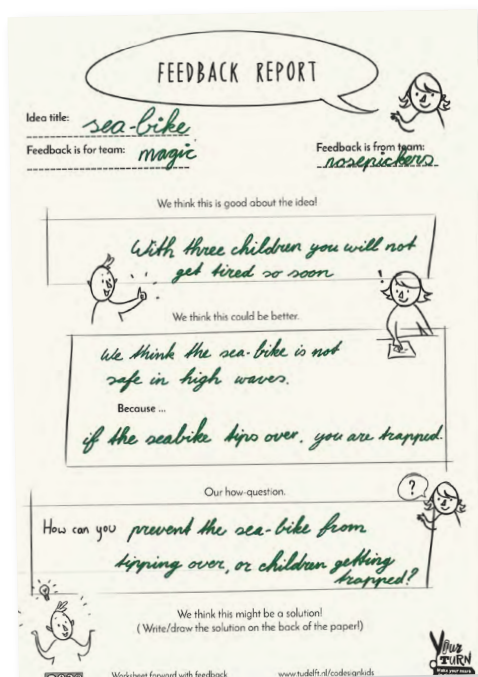 FEEDBACK REPORT
Idea title: sea-bike
Feedback is for team: magic
Feedback is from team:
nosepickers
We think this is good about the idea!
With three children you will not
get tired so soon
We think this could be better.
We think the sea-bike is not
safe in high waves.
Because ...
if the seabike tips over, you are trapped.
Our how-question.
?
How can you prevent the sea-bike from
tipping over, or children getting
trapped?
We think this might be a solution!
( Write/draw the solution on the back of the paper!)
Your
TURN
Worksheet forward with feedback
www.tudelft.nl/codesignkids